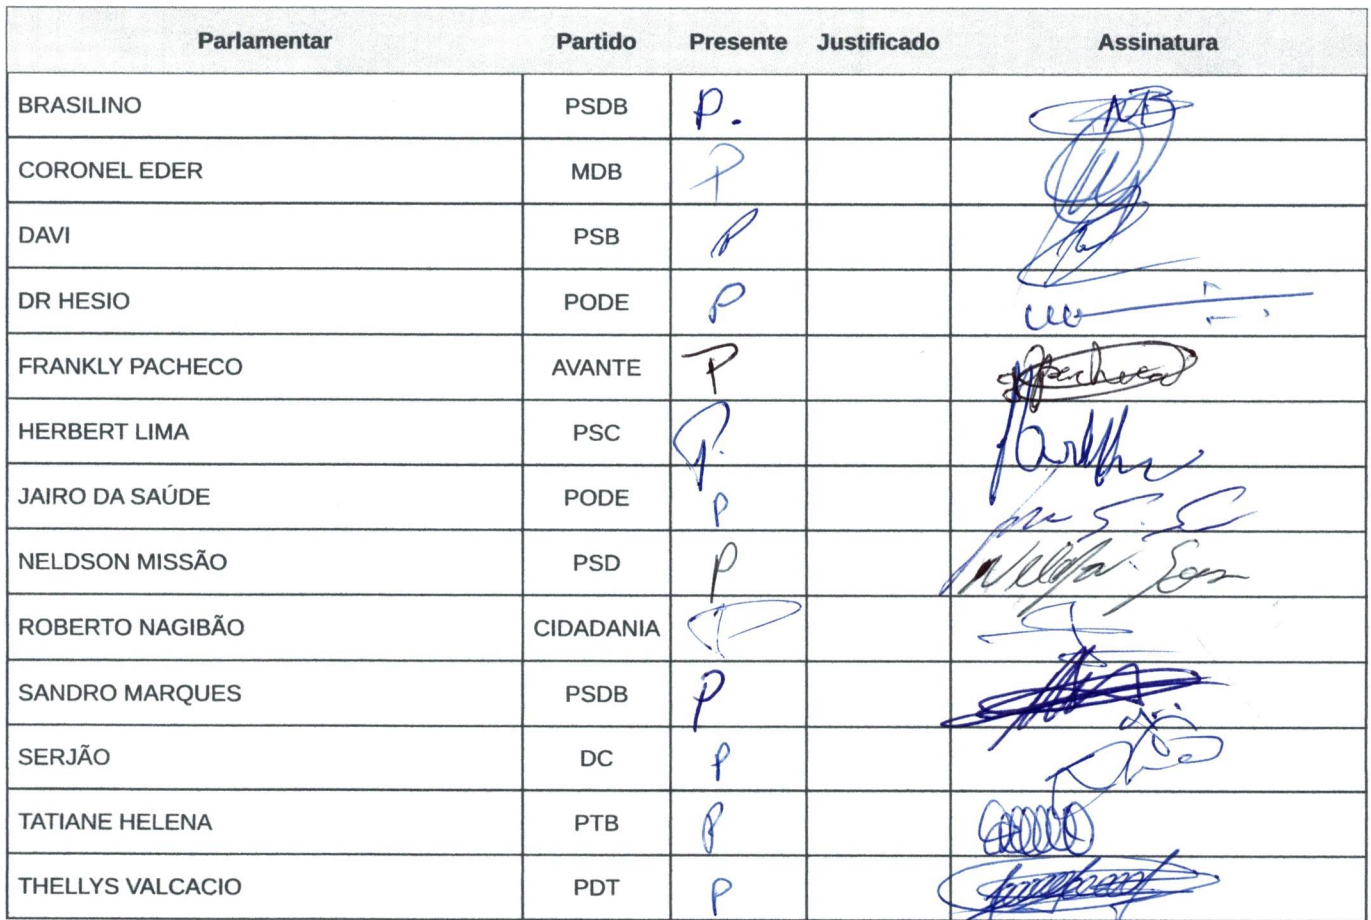 Parlamentar Partido Presente Justificado Assinatura
BRASILINO PSDB P.
CORONEL EDER MDB P
DAVI PSB P
DR HESIO PODE P
FRANKLY PACHECO AVANTE P
HERBERT LIMA PSC P.
JAIRO DA SAÚDE PODE P
NELDSON MISSÃO PSD P
ROBERTO NAGIBÃO CIDADANIA P
SANDRO MARQUES PSDB P
SERJÃO DC P
TATIANE HELENA PTB P
THELLYS VALCACIO PDT P